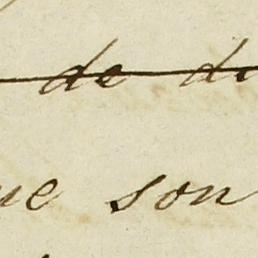 de di
ue son